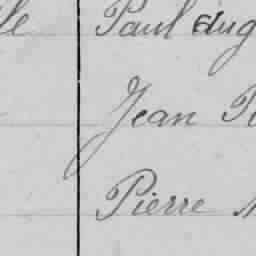 le Paul Aug
Jean P
Pierre